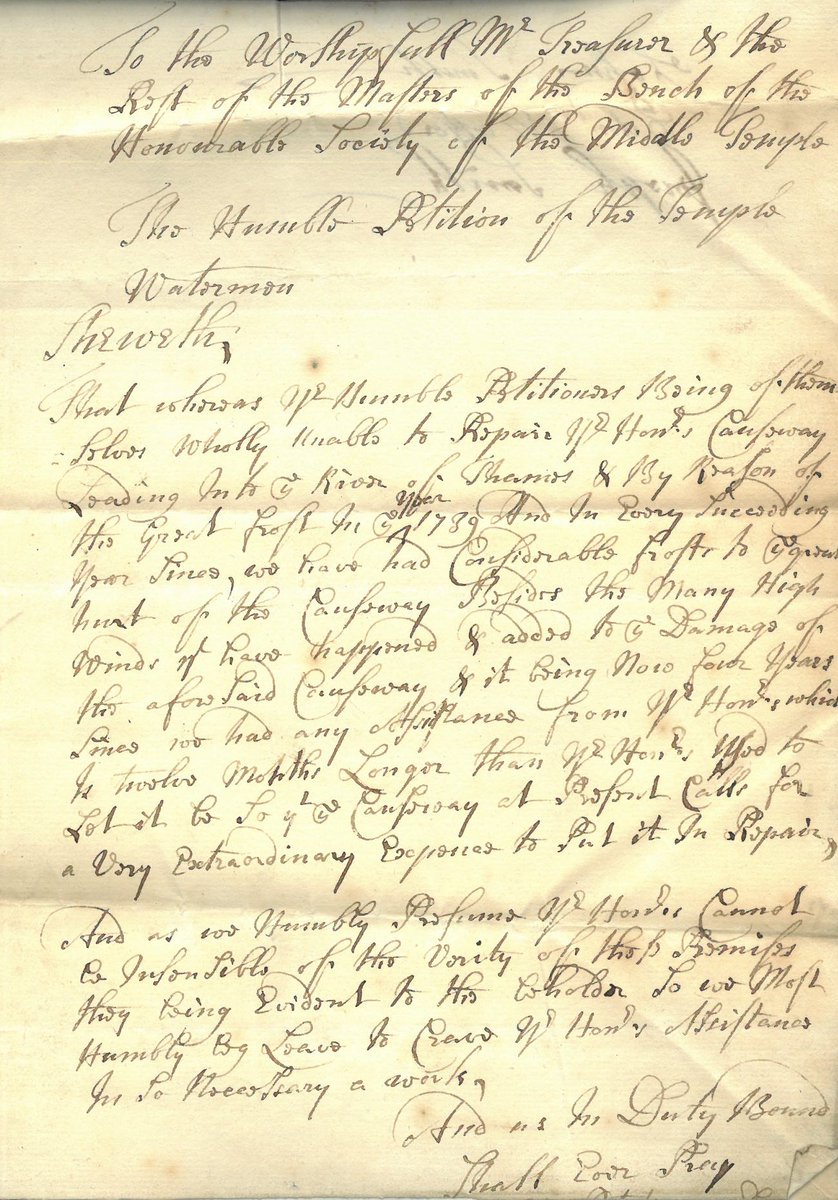 To the Worshipfull Mr Treasurer & the
Rest of the Masters of the Bench of the
Honourable Society of the Middle Temple
The Humble Petition of the Temple
Watermen
Sheweth,
That whereas Yr Humble Petitioners Being of them
selves Wholly Unable to Repair Yr Honrs Causeway
Leading Into ye River of Thames & By Reason of
the Great frost In ye year 1739 And In Every Succeeding
Year Since, we have had Considerable frosts to ye great
hurt of the Causeway Besides the Many High
Winds yt have happened & added to ye Damage of
the afore Said Causeway & it being Now four Years
Since we had any Assistance from Yr Honrs which
Is twelve Months Longer than Yr Honrs Used to
Let it be So yt ye Causeway at Present Calls for
a Very Extraordinary Expence to Put it In Repair,
And as we Humbly Presume Yr Honrs Cannot
be Insensible of the Verity of these Premises
they being Evident to the beholder So we Most
Humbly Beg Leave to Crave Yr Honrs Assistance
In So Necessary a work,
And as In Duty Bound
Shall Ever Pray